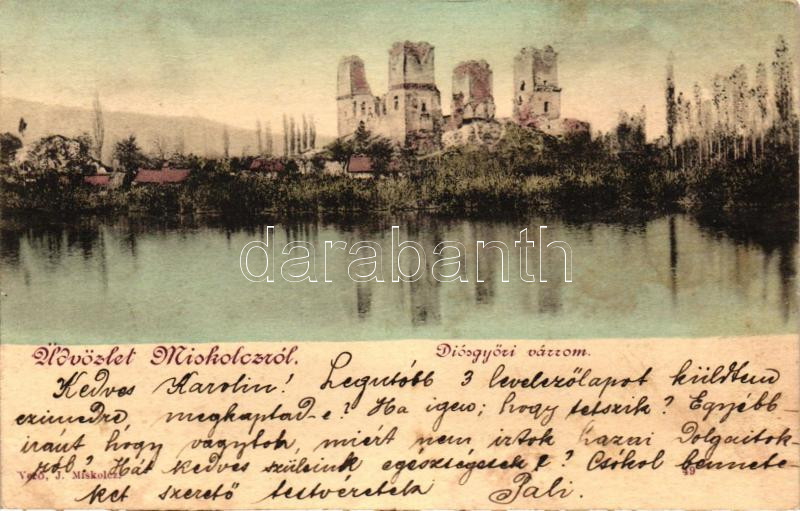 darabanth
Üdvözlet Miskolczról. Diósgyőri várrom.
Kedves Karolin! Legutóbb 3 levelezőlapot küldtem
czimedre megkaptad-e? Ha igen; hogy tetszik? Egyébb-
iránt hogy vagytok, miért nem irtok hazai Dolgaitok-
ról? Hát kedves szüleink egészségesek e? Csókol bennete-
Vero, J. Miskolcz.
ket szerető testvéretek Pali.